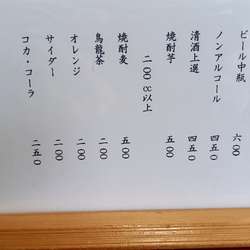 ビール中瓶 六〇〇
ノンアルコール 四五〇
清酒上選 四五〇
焼酎芋 五〇〇
二〇〇cc以上
焼酎麦 五〇〇
烏龍茶 二〇〇
オレンジ 二〇〇
サイダー 二〇〇
コカ・コーラ 二五〇